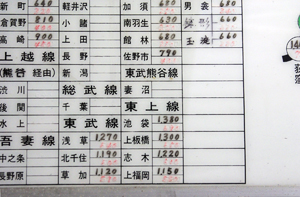 新町 640 軽井沢 加須 680 男衾 680
倉賀野 810 小諸 南羽生 630
高崎 900 上田 館林 680 玉淀
上越線 長野 佐野市 790
(熊谷 経由) 新潟 東武熊谷線
渋川 総武線 妻沼
後閑 千葉 東上線
水上 東武線 池袋 1,380
吾妻線 浅草 1,270 上板橋 1,300
中之条 北千住 1,190 志木 1,220
長野原 草加 1,120 上福岡 1,150